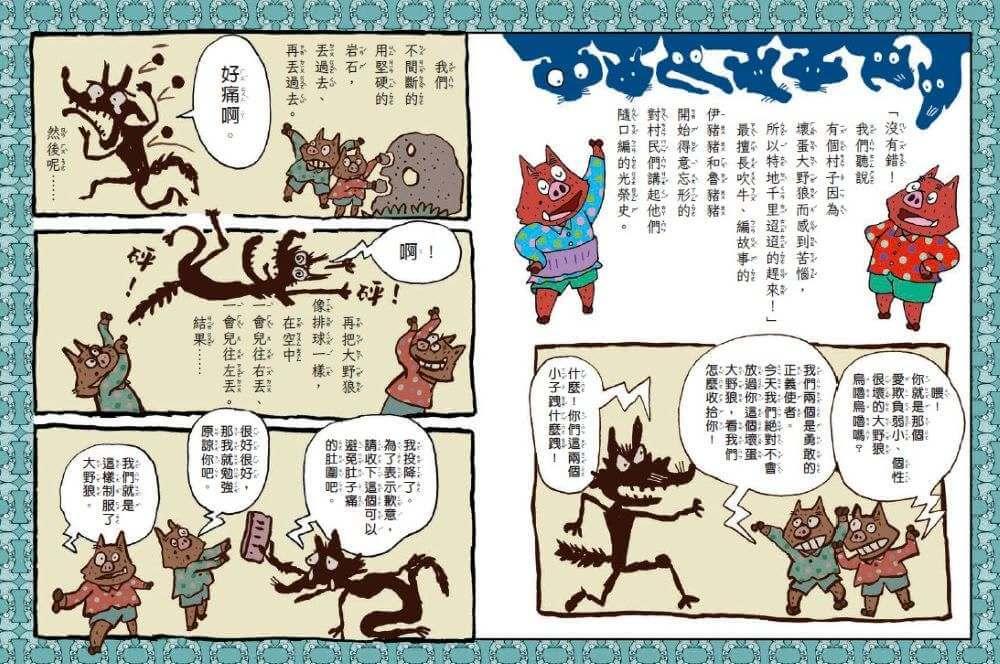 「沒有錯！
我們聽說
有個村子因為
壞蛋大野狼而感到苦惱，
所以特地千里迢迢的趕來！」
最擅長吹牛、編故事的
伊豬豬和魯豬豬
開始得意忘形的
對村民們講起他們
隨口編的光榮史。
喂！
你就是那個
愛欺負弱小、個性
很壞的大野狼
烏嚕烏嚕嗎？
我們兩個是勇敢的
正義使者。
今天我們絕對不會
放過你這個壞蛋
大野狼，看我們
怎麼收拾你！
什麼！你們這兩個
小子跩什麼跩！
我們
不間斷的
用堅硬的
岩石，
丟過去、
再丟過去。
好痛啊。
然後呢……
啊！
砰！
砰！
再把大野狼
像排球一樣，
在空中
一會兒往右丟、
一會兒往左丟。
結果……
我投降了。
為了表示歉意，
請收下這個可以
避免肚子痛
的肚圍吧。
很好很好，
那我就勉強
原諒你吧。
我們就是
這樣制服了
大野狼。